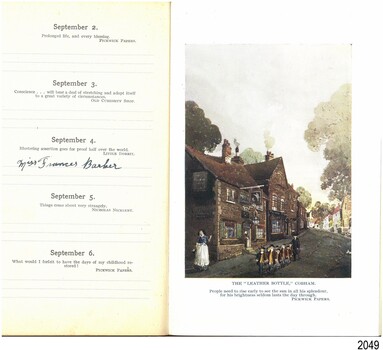 September 2.
Prolonged life, and every blessing.
PICKWICK PAPERS.
September 3.
Conscience . . . will bear a deal of stretching and adapt itself
to a great variety of circumstances.
OLD CURIOSITY SHOP.
September 4.
Shivering assertion goes for proof half over the world.
LITTLE DORRIT.
Miss Frances Barker
September 5.
Things come about very strangely.
NICHOLAS NICKLEBY.
September 6.
What would I forfeit to have the days of my childhood re-
stored!
PICKWICK PAPERS.
THE "LEATHER BOTTLE," COBHAM.
People need to rise early to see the sun in all his splendour,
for his brightness seldom lasts the day through.
PICKWICK PAPERS.
2049